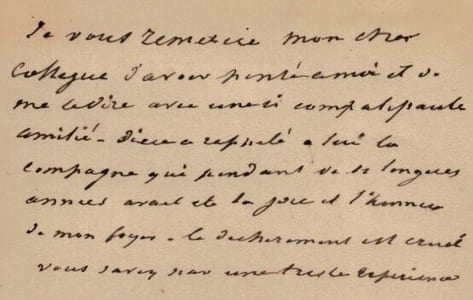 Je vous remercie mon cher
Collegue d'avoir pensé a moi et de
me le dire avec une si compatissante
amitié - Dieu a rappelé a lui la
compagne qui pendant de si longues
annees avait été la joie et l'honneur
de mon foyer - le dechirement est cruel
vous savez par une triste experience